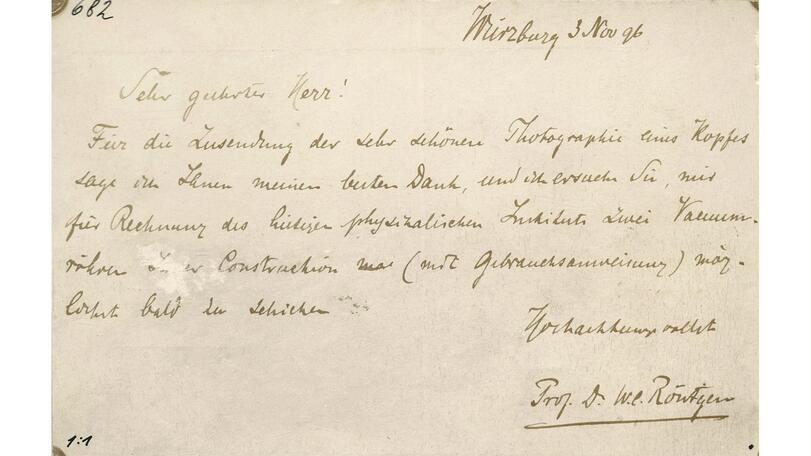 682
Würzburg 3 Nov 96
Sehr geehrter Herr!
Für die Zusendung der sehr schönen Photographie eines Kopfes
sage ich Ihnen meinen besten Dank, und ich ersuche Sie, mir
für Rechnung des hiesigen physikalischen Instituts zwei Vacuum-
röhren Construction (mit Gebrauchsanweisung) mög-
lichst bald zu schicken
Hochachtungsvollst
Prof. Dr W.C. Röntgen
1:1